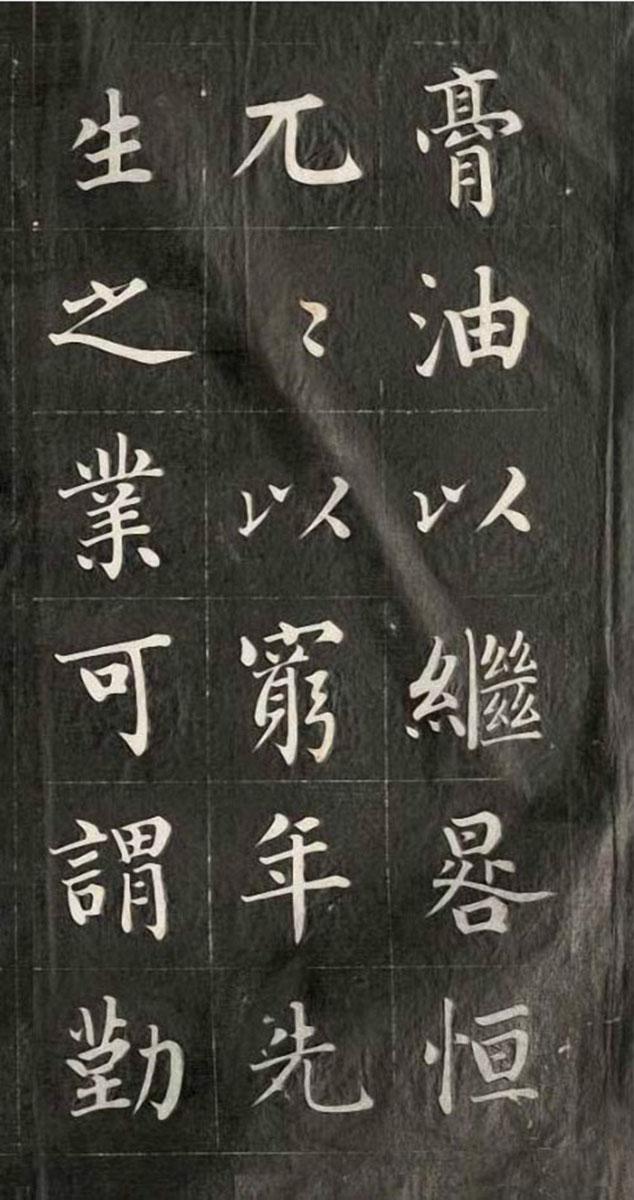 膏油以繼晷恒
兀〻以窮年先
生之業可謂勤